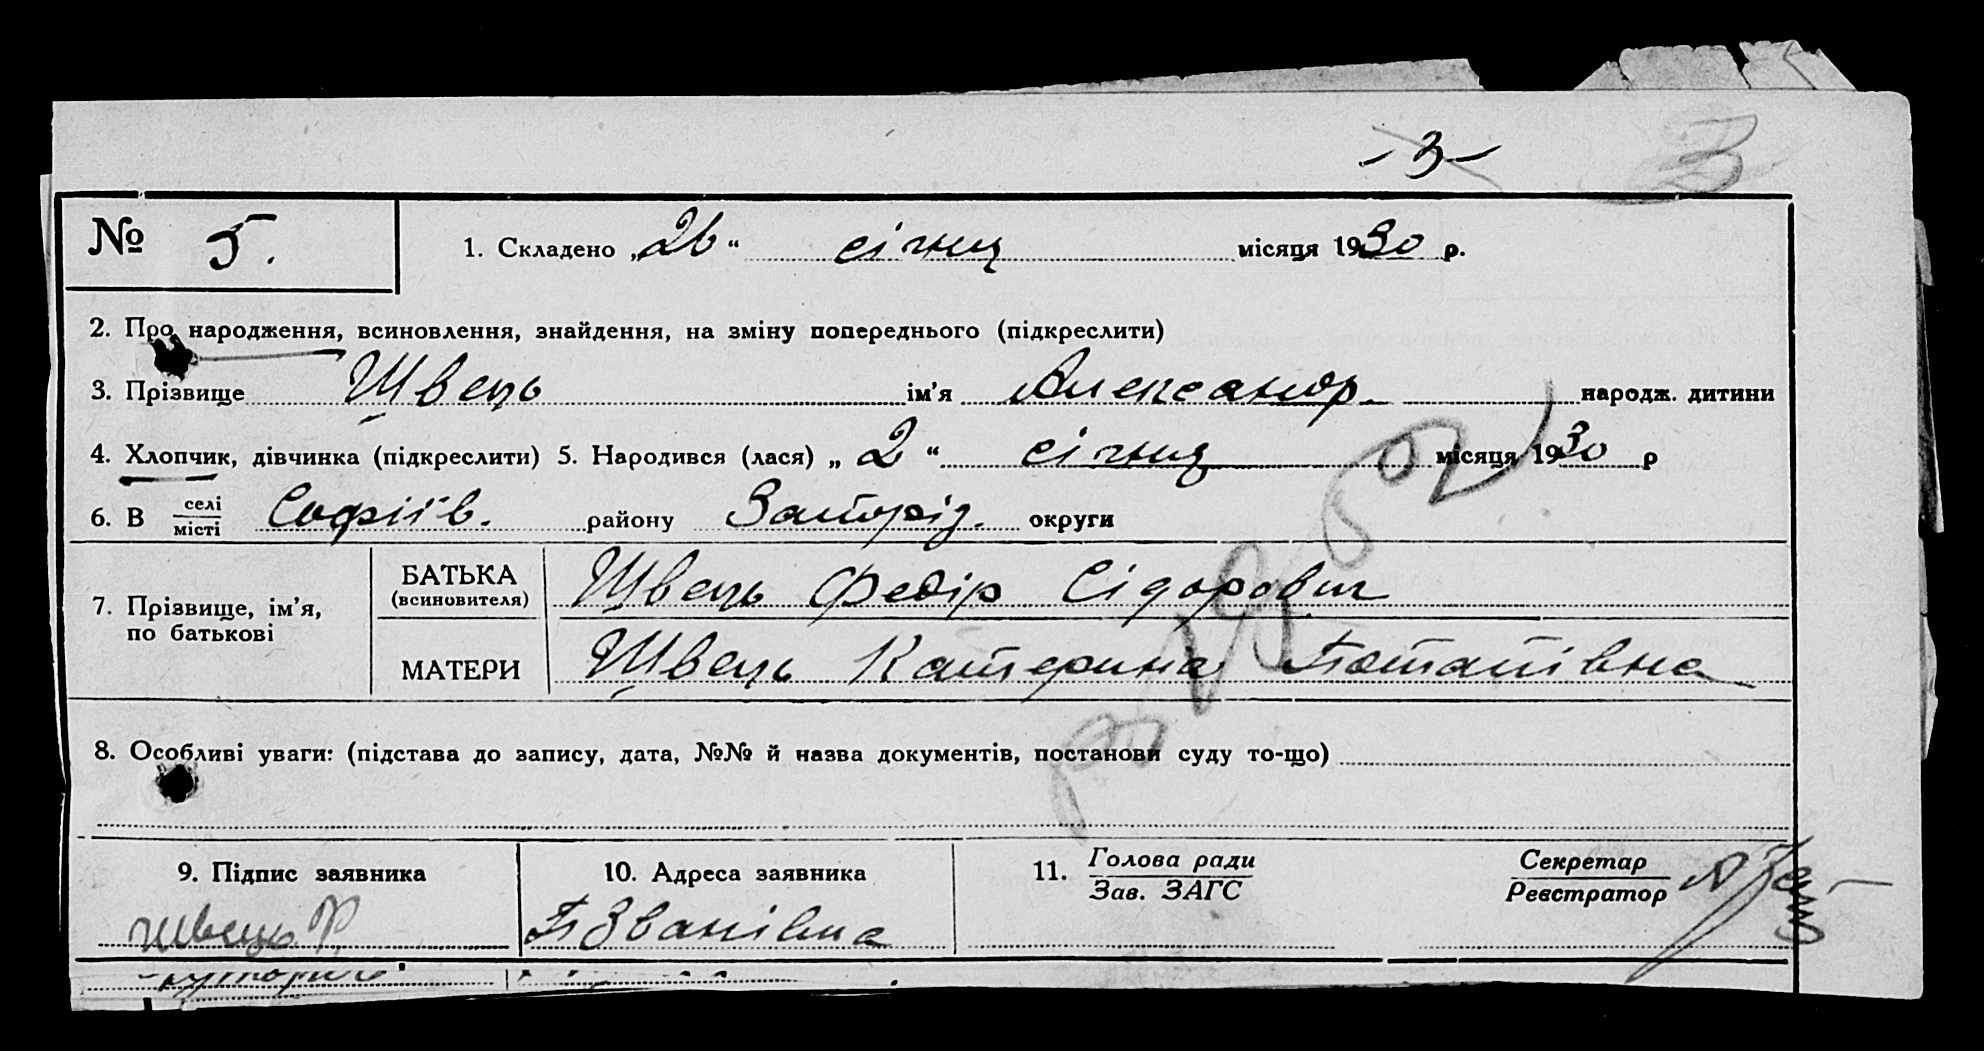 - 3 - 3
№ 5. 1. Складено „26“ січня місяця 1930 р.
2. Про народження, всиновлення, знайдення, на зміну попереднього (підкреслити)
3. Прізвище Швець ім'я Александр. народж. дитини
4. Хлопчик, дівчинка (підкреслити) 5. Народився (лася) „2“ січня місяця 1930 р
6. В селі місті Софіїв. району Запоріз. округи
7. Прізвище, ім'я, по батькові
БАТЬКА (всиновителя) Швець Федір Сідорович
МАТЕРИ Швець Катерина Потапівна
8. Особливі уваги: (підстава до запису, дата, №№ й назва документів, постанови суду то-що)
9. Підпис заявника 10. Адреса заявника 11. Голова ради Зав. ЗАГС Секретар Реєстратор
Швець Ф.